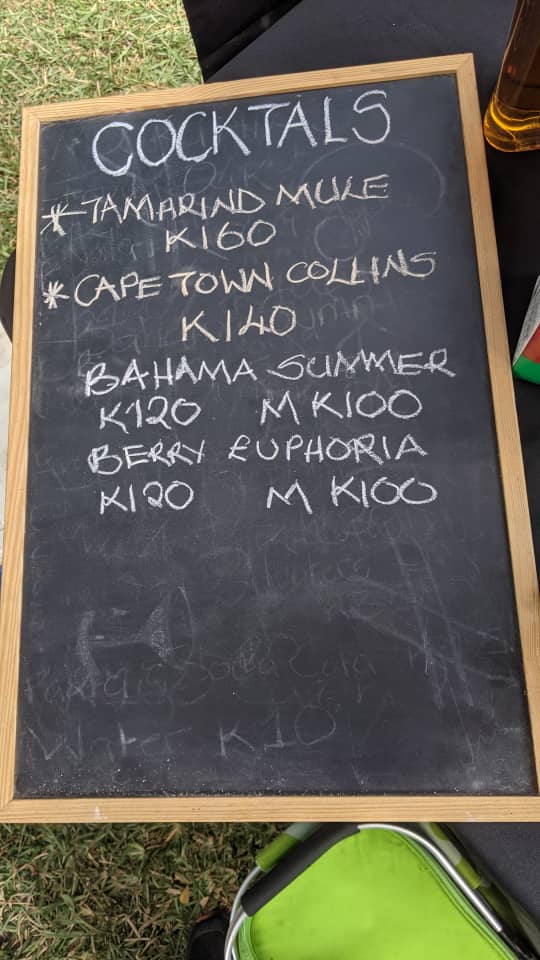 COCKTALS
*TAMARIND MULE
K160
*CAPE TOWN COLLINS
K140
BAHAMA SUMMER
K120 M K100
BERRY EUPHORIA
K120 M K100
Water K10